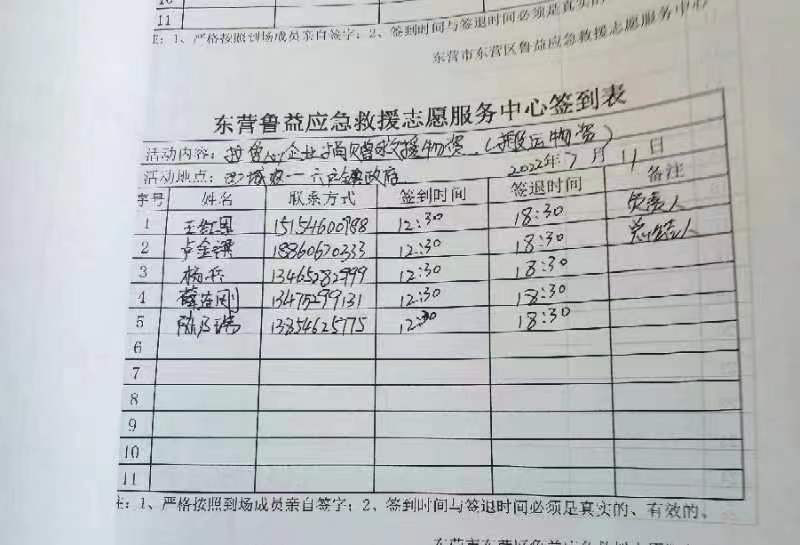 11
注：1、严格按照到场成员亲自签字；2、签到时间与签退时间必须是真实的
东营市东营区鲁益应急救援志愿服务中心
东营鲁益应急救援志愿服务中心签到表
活动内容：企业捐赠救援物资（搬运物资）
活动地点：一六户镇政府 2022年7月11日
序号 姓名 联系方式 签到时间 签退时间 备注
1 王红 15154600988 12:30 18:30 负责人
2 卢金 18860670333 12:30 18:30 总结人
3 杨兵 13465282999 12:30 18:30
4 薛 刚 13475299131 12:30 18:30
5 陈 13854625775 12:30 18:30
6
7
8
9
10
11
注：1、严格按照到场成员亲自签字；2、签到时间与签退时间必须是真实的、有效的、
东营市东营区鲁益应急救援志愿服务